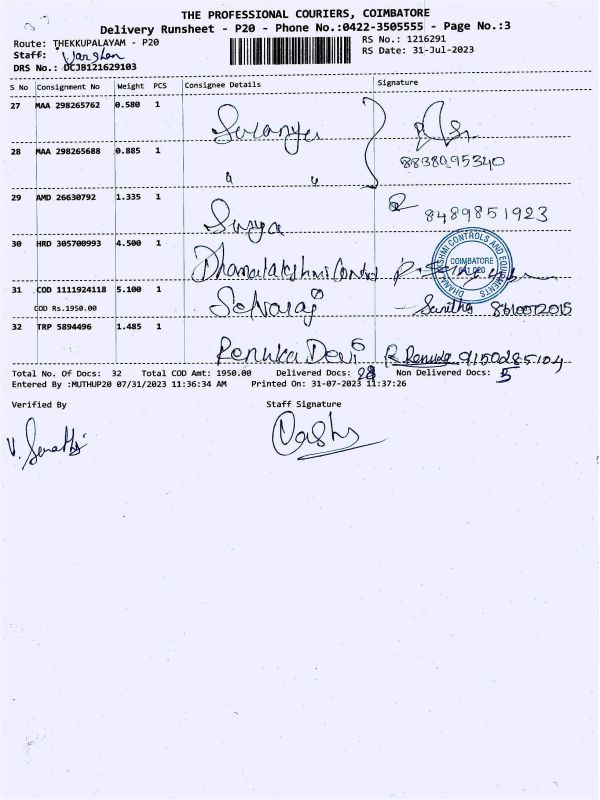 THE PROFESSIONAL COURIERS, COIMBATORE
Delivery Runsheet - P20 - Phone No.:0422-3505555 - Page No.:3
Route: THEKKUPALAYAM - P20
RS No.: 1216291
Staff: Varshan
RS Date: 31-Jul-2023
DRS No.: DCJB121629103
S No Consignment No Weight PCS Consignee Details Signature
27 MAA 298265762 0.580 1 Saranya
28 MAA 298265688 0.885 1 " " 8838095340
29 AMD 26630792 1.335 1 Surya 8489851923
30 HRD 305700993 4.500 1 Dhanalakshmi Control
DHANALAKSHMI CONTROLS AND EQUIPMENTS
COIMBATORE
641 020
31 COD 1111924118 5.100 1 Selvaraj Saritha 8610072015
COD Rs.1950.00
32 TRP 5894496 1.485 1 Renuka Devi R Renuka 9150285104
Total No. Of Docs: 32 Total COD Amt: 1950.00 Delivered Docs: Non Delivered Docs: 5
Entered By :MUTHUP20 07/31/2023 11:36:34 AM Printed On: 31-07-2023 11:37:26
Verified By Staff Signature